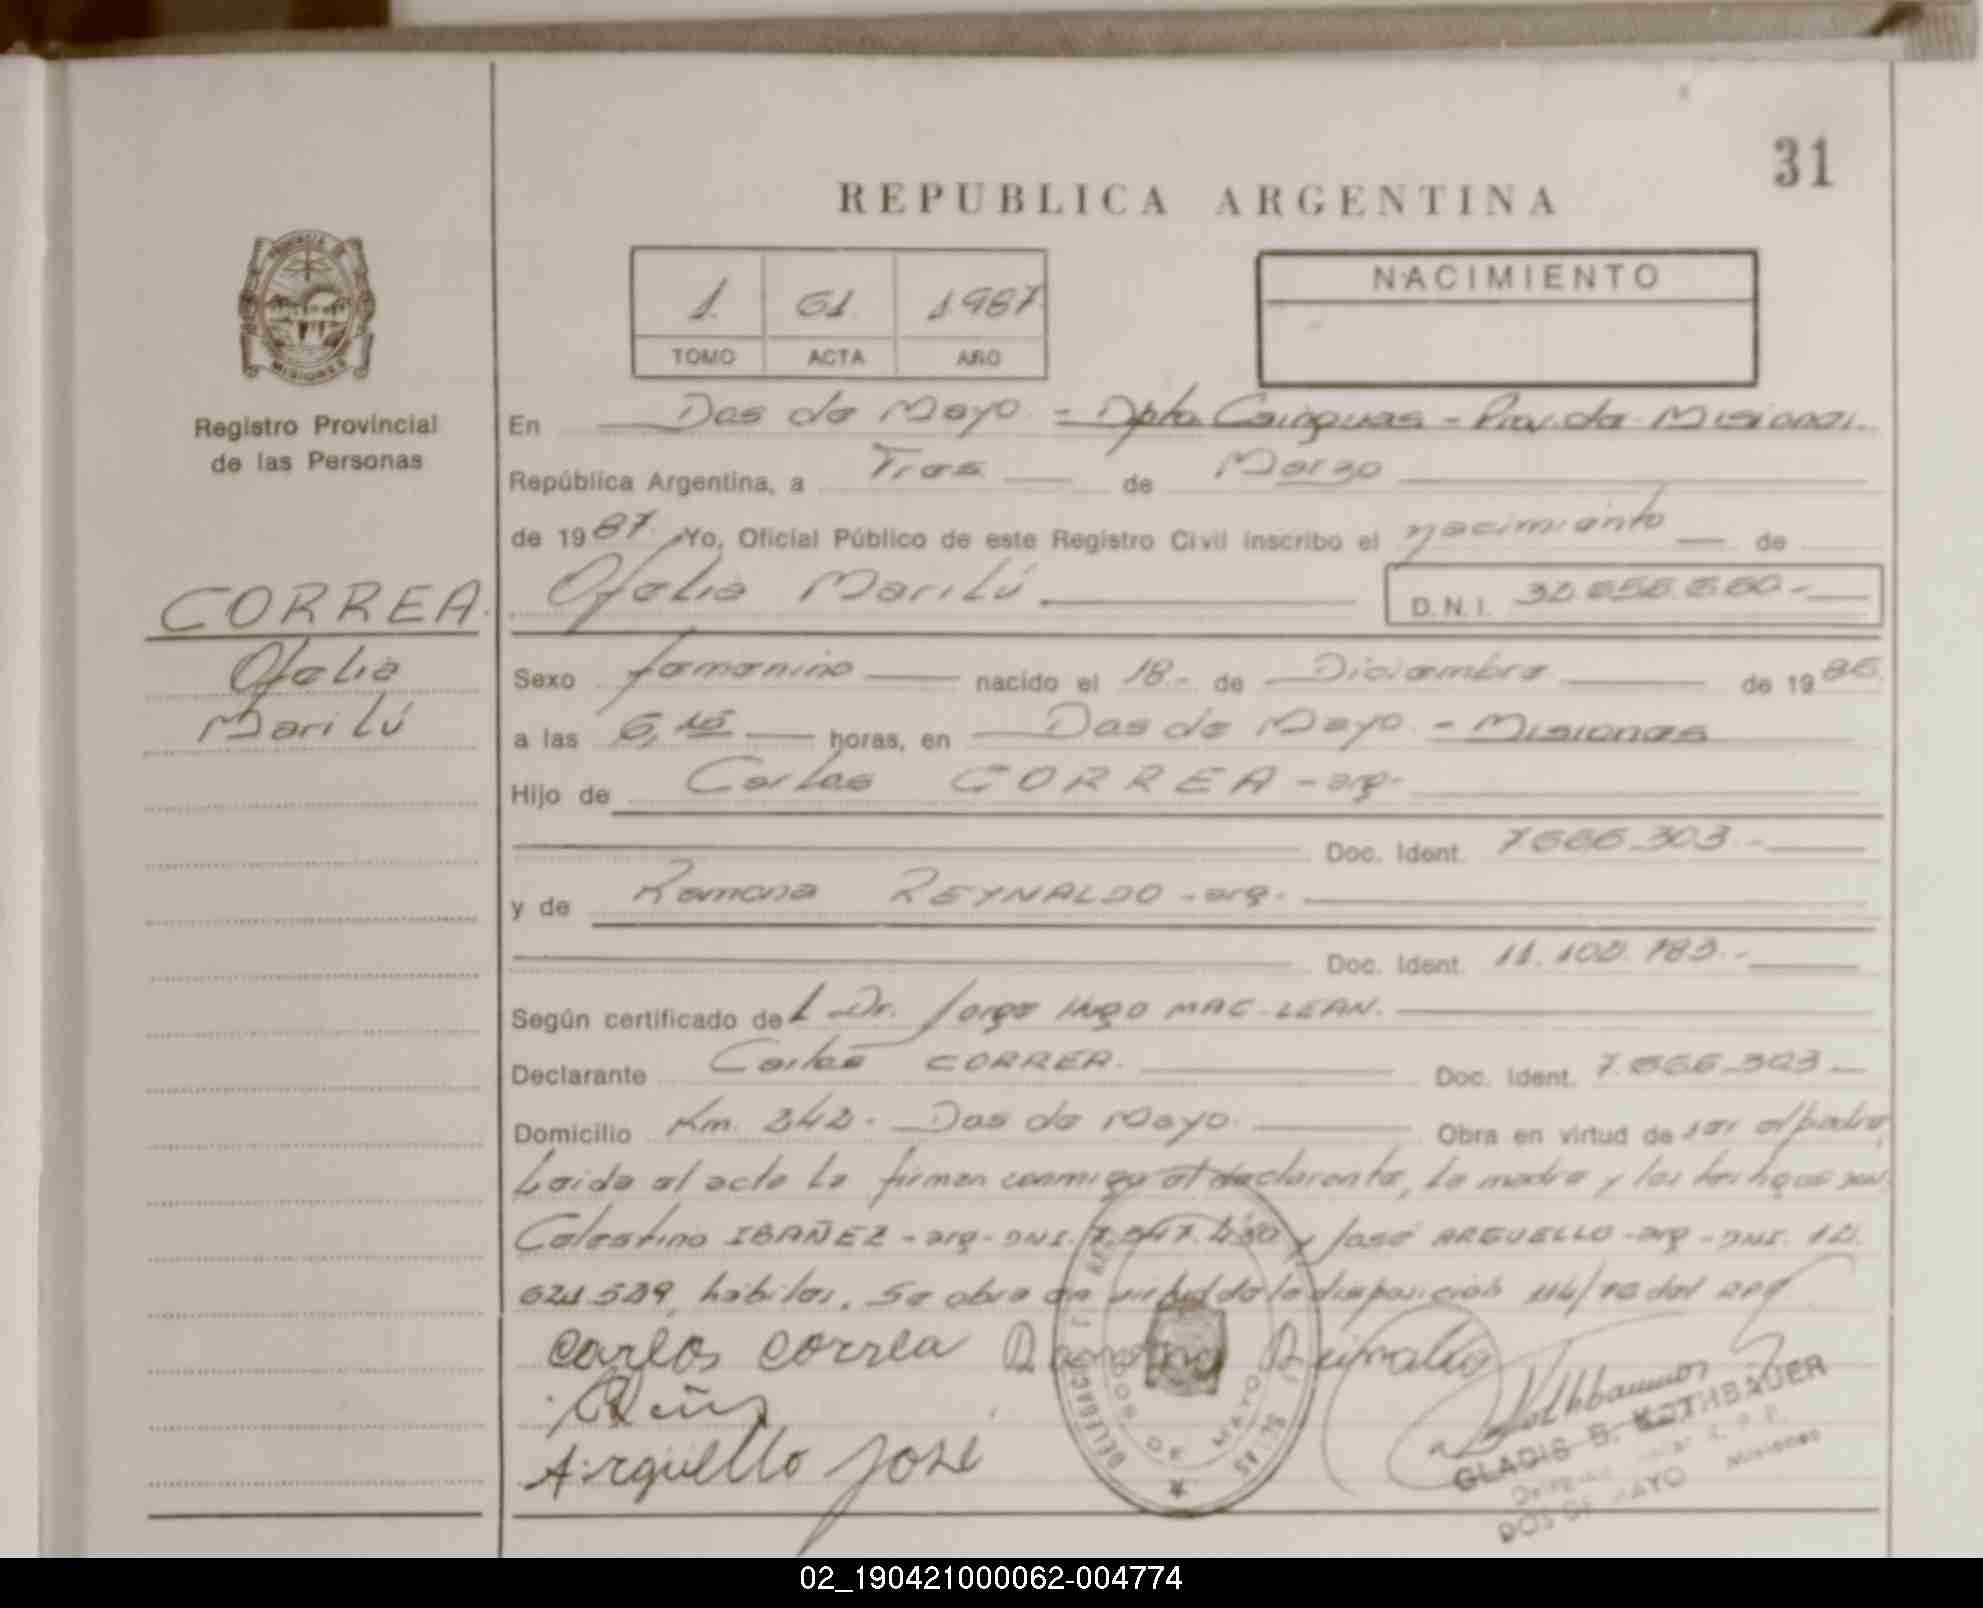 31
REPUBLICA ARGENTINA
1 61 1987
TOMO ACTA AÑO
NACIMIENTO
MISIONES
Registro Provincial
de las Personas
CORREA
Ofelia
Marilú
En Dos de Mayo - Dpto. Cainguas - Prov. de Misiones.
República Argentina, a Tres de Marzo
de 1987. Yo, Oficial Público de este Registro Civil inscribo el nacimiento de
Ofelia Marilú D.N.I.
Sexo femenino nacido el 18 - de Diciembre de 1986
a las 6, horas, en Dos de Mayo - Misiones
Hijo de Carlos CORREA - arg-
Doc. Ident. 7.666.303.-
y de Ramona REYNALDO - arg.
Doc. Ident. 11.102.783.-
Según certificado del Dr. Jorge Hugo MAC LEAN.
Declarante Carlos CORREA. Doc. Ident. 7.666.303
Domicilio Km. 242 - Dos de Mayo. Obra en virtud de ser el padre
Leida el acta la firman conmigo el declarante, la madre y los testigos
Celestino IBAÑEZ - arg - DNI. y José ARGUELLO - arg - DNI.
hábiles. Se obra en virtud de la disposición del
Carlos Correa Ramona Reinaldo
Argüello José
DELEGACION
DOS DE MAYO
GLADIS B. ROTHBAUER
DOS DE MAYO Misiones
02_190421000062-004774